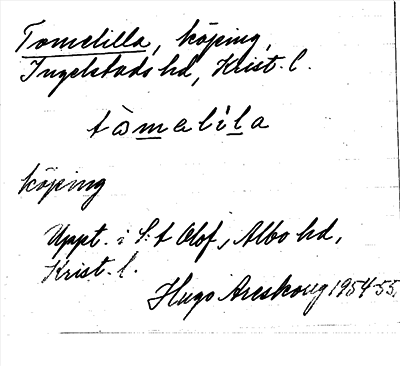 Tomelilla, köping,
Ingelstads hd, Krist. l.
tòmalíla
köping
Uppt. i S:t Olof, Albo hd,
Krist. l.
Hugo Areskoug 1954-55.